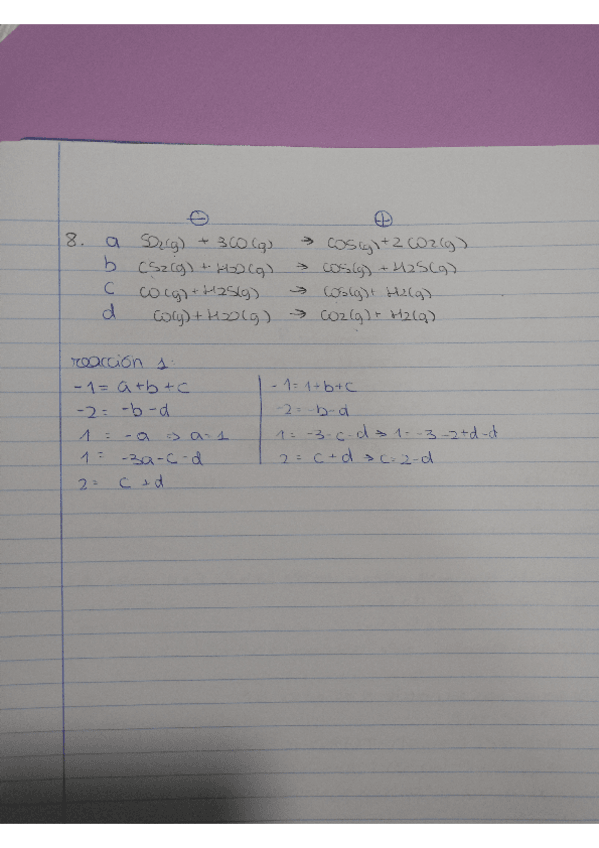 ⊖ ⊕
8. a SO2(g) + 3CO(g) → COS(g) + 2 CO2(g)
b CS2(g) + H2O(g) → COS(g) + H2S(g)
c CO(g) + H2S(g) → COS(g) + H2(g)
d CO(g) + H2O(g) → CO2(g) + H2(g)
reacción 1:
-1 = a + b + c
-2 = -b - d
1 = -a ⇒ a = 1
1 = -3a - c - d
2 = c + d
-1 = 1 + b + c
-2 = -b - d
1 = -3 - c - d ⇒ 1 = -3 - 2 + d - d
2 = c + d ⇒ c = 2 - d